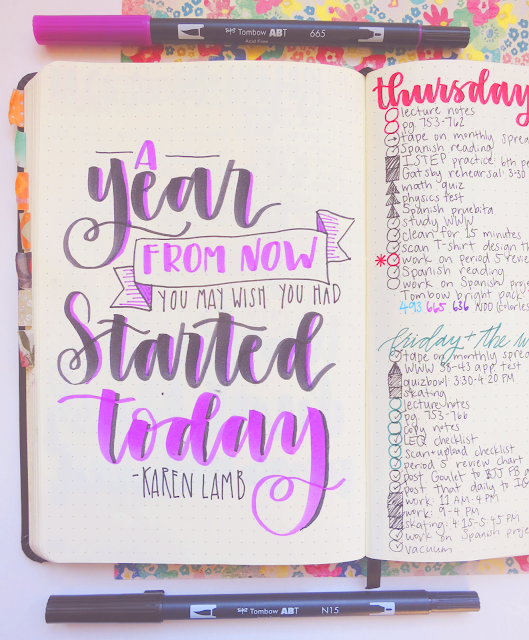 Tombow ABT 665
A
year
FROM NOW
YOU MAY WISH YOU HAD
Started
today
-KAREN LAMB
thursday
lecture notes
pg 753-762
tape on monthly sprea
Spanish reading
ISTEP practice: 6th pe
Gatsby rehearsal: 3:30
math quiz
physics test
Spanish pruebita
study WWW
clean for 15 minutes
scan T-shirt design f
* work on period 5 revie
Spanish reading
work on Spanish proje
Tombow bright pack
493 665 636 N00 (colorles
friday + the w
tape on monthly sprea
WWW 36-43 app test
quizbowl: 3:30-4:20 PM
skating
lecture notes
pg 753-766
copy notes
LEQ checklist
scan + upload checklist
period 5 review chart
post Goulet to BJJ FB
post that daily to IG
work: 11 AM-4 PM
work: 9-4 PM
skating: 4:15-5:45 PM
work on Spanish proje
vacuum
Tombow ABT N15